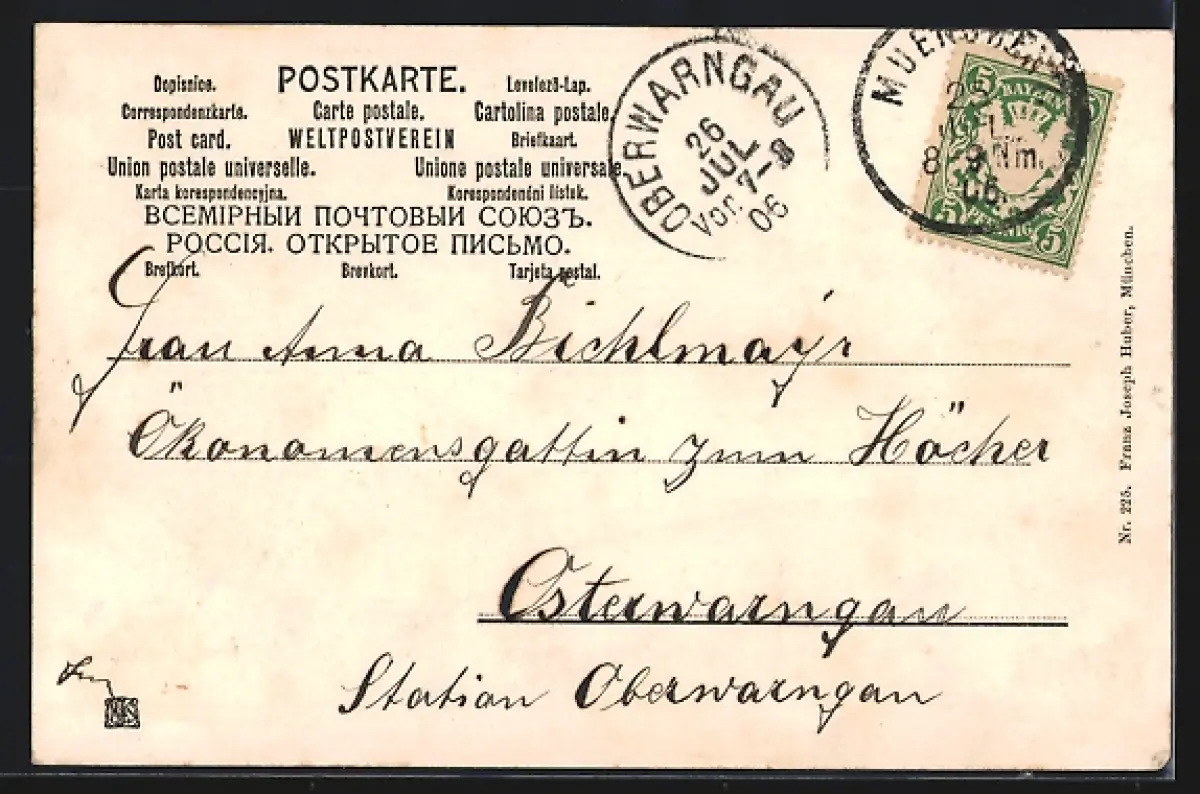 POSTKARTE.
Dopisnice. Levelező-Lap.
Correspondenzkarte. Carte postale. Cartolina postale.
Post card. WELTPOSTVEREIN Briefkaart.
Union postale universelle. Unione postale universale.
Karta korespondencyjna. Korespondenční listek.
ВСЕМІРНЫИ ПОЧТОВЫИ СОЮЗЪ.
РОССІЯ. ОТКРЫТОЕ ПИСЬМО.
Brefkort. Brevkort. Tarjeta postal.
OBERWARNGAU
26
JUL
Vor. 7-8
06
MUENCHEN
8-9 Nm.
06.
5 5
BAYERN
5 5
Frau Anna Bichlmayr
Ökonomensgattin zum Höcher
Osterwarngau
Station Oberwarngau
Nr. 225. Franz Joseph Huber, München.